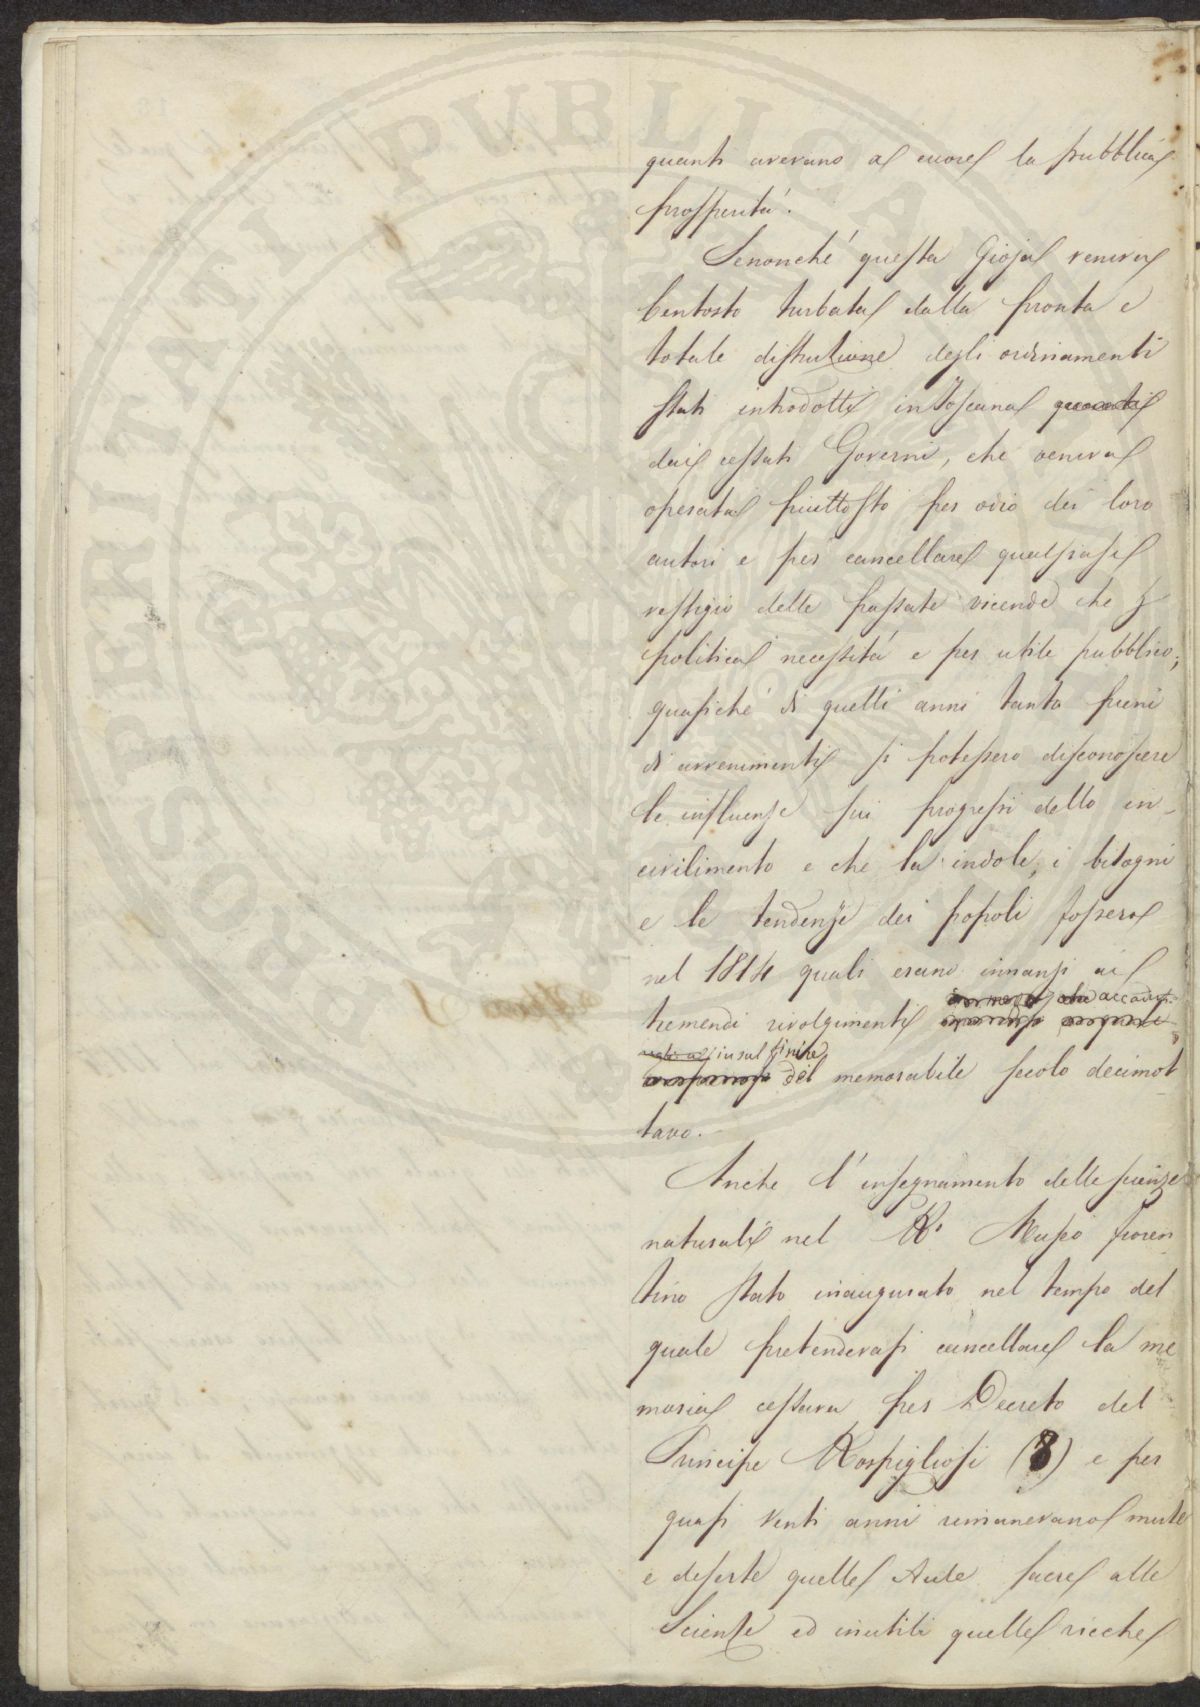 quanti avevano al cuore la pubblica
prosperità.
Senonché questa Gioja veniva
bentosto turbata dalla pronta e
totale distruzione degli ordinamenti
stati introdotti in Toscana
dai cessati Governi, che veniva
operata piuttosto per odio dei loro
autori e per cancellare qualsiasi
vestigio delle passate vicende che p
politica necessità e per utile pubblico;
quasiché di quelli anni tanto pieni
di avvenimenti si potessero disconoscere
le influenze sui progressi dello in-
civilimento e che la indole, i bisogni
e le tendenze dei popoli fossero
nel 1814 quali erano innanzi ai
tremendi rivolgimenti
in sul finire
del memorabile secolo decimot
tavo.
Anche l'insegnamento delle scienze
naturali nel R. Museo fioren
tino stato inaugurato nel tempo del
quale pretendevasi cancellare la me
moria cessava per Decreto del
Principe Rospigliosi (8) e per
quasi venti anni rimanevano mute
e deserte quelle Aule sacre alle
Scienze ed inutili quelle ricche